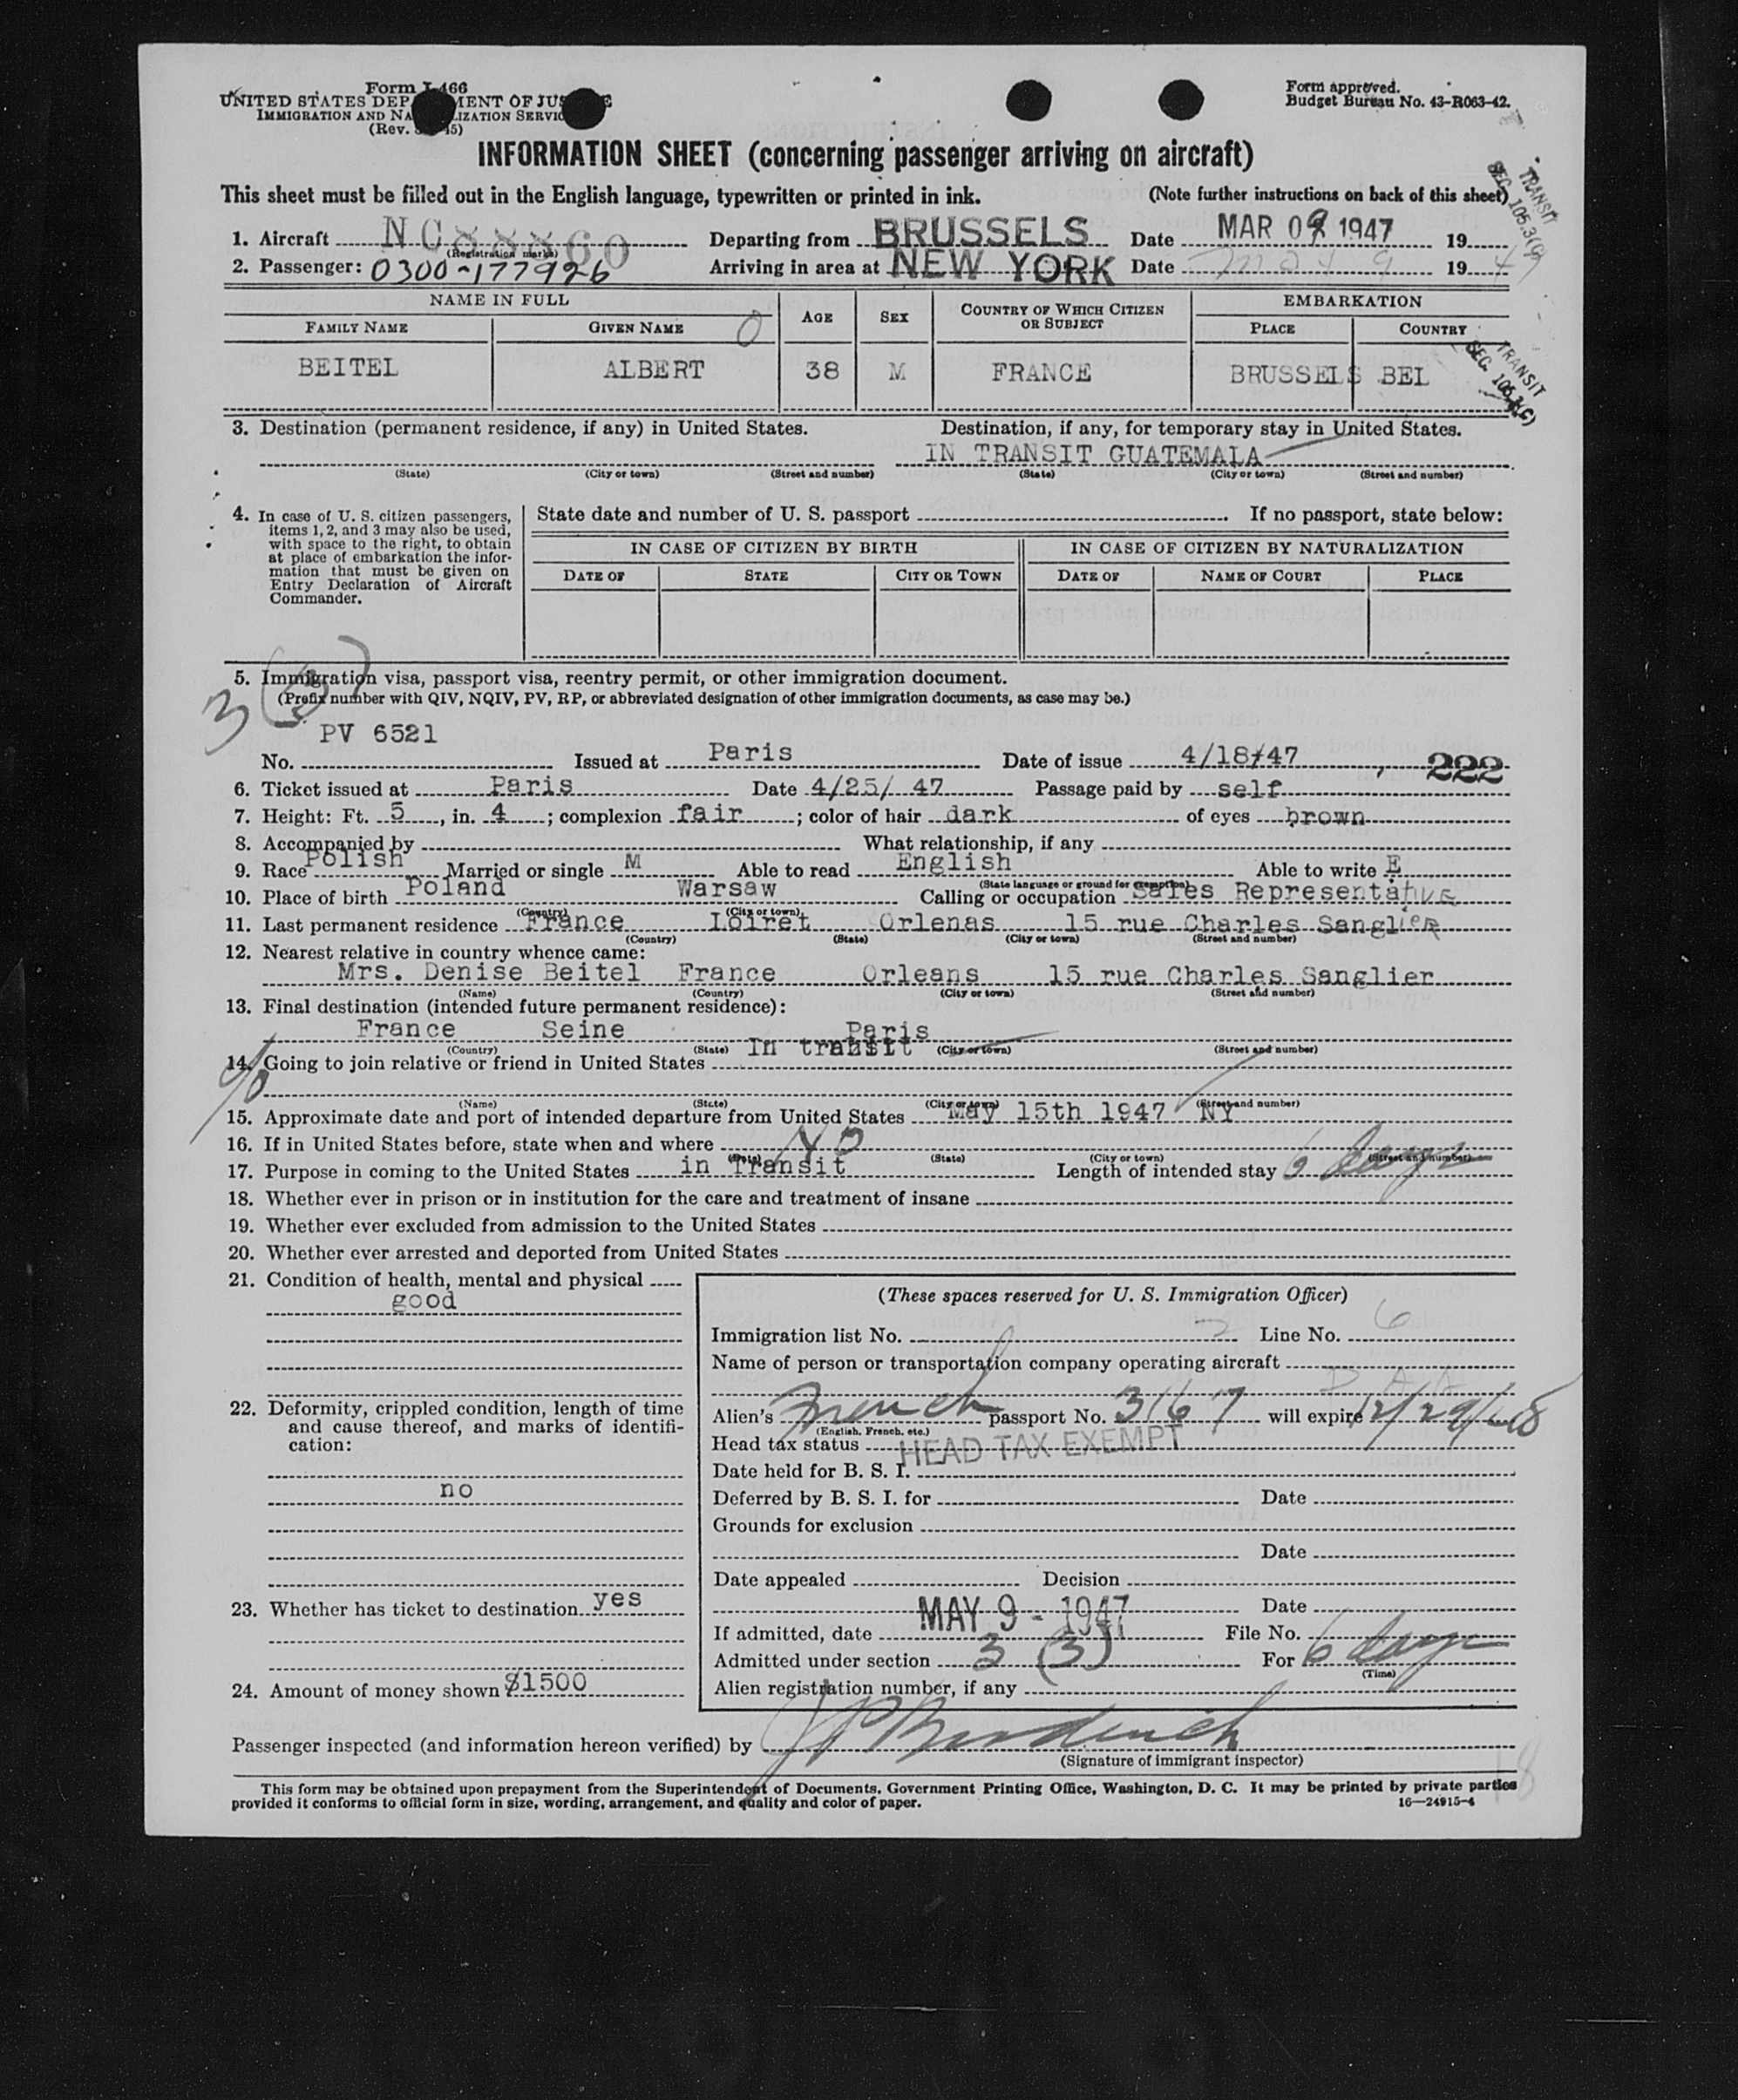 Form I-466
UNITED STATES DEPARTMENT OF JUSTICE
IMMIGRATION AND NATURALIZATION SERVICE
(Rev. 45)
Form approved.
Budget Bureau No. 43-R063-42.
INFORMATION SHEET (concerning passenger arriving on aircraft)
This sheet must be filled out in the English language, typewritten or printed in ink. (Note further instructions on back of this sheet)
TRANSIT
SEC. 105.3(C)
1. Aircraft NC88860 Departing from BRUSSELS Date MAR 09 1947 19
(Registration marks)
2. Passenger: 0300-177926 Arriving in area at NEW YORK Date May 9 1947
NAME IN FULL AGE SEX COUNTRY OF WHICH CITIZEN OR SUBJECT EMBARKATION
FAMILY NAME GIVEN NAME PLACE COUNTRY
0
BEITEL ALBERT 38 M FRANCE BRUSSELS BEL
TRANSIT
SEC. 105.3(C)
3. Destination (permanent residence, if any) in United States. Destination, if any, for temporary stay in United States.
IN TRANSIT GUATEMALA
(State) (City or town) (Street and number) (State) (City or town) (Street and number)
4. In case of U. S. citizen passengers, items 1, 2, and 3 may also be used, with space to the right, to obtain at place of embarkation the information that must be given on Entry Declaration of Aircraft Commander.
State date and number of U. S. passport If no passport, state below:
IN CASE OF CITIZEN BY BIRTH IN CASE OF CITIZEN BY NATURALIZATION
DATE OF STATE CITY OR TOWN DATE OF NAME OF COURT PLACE
5. Immigration visa, passport visa, reentry permit, or other immigration document.
(Prefix number with QIV, NQIV, PV, RP, or abbreviated designation of other immigration documents, as case may be.)
3 (3)
PV 6521
No. Issued at Paris Date of issue 4/18/47 222
6. Ticket issued at Paris Date 4/25/ 47 Passage paid by self
7. Height: Ft. 5, in. 4; complexion fair; color of hair dark of eyes brown
8. Accompanied by What relationship, if any
9. Race Polish Married or single M Able to read English Able to write E
(State language or ground for exemption)
10. Place of birth Poland Warsaw Calling or occupation Sales Representative
(Country) (City or town)
11. Last permanent residence France Loiret Orlenas 15 rue Charles Sanglier
(Country) (State) (City or town) (Street and number)
12. Nearest relative in country whence came:
Mrs. Denise Beitel France Orleans 15 rue Charles Sanglier
(Name) (Country) (City or town) (Street and number)
13. Final destination (intended future permanent residence):
France Seine Paris
(Country) (State) (City or town) (Street and number)
14. Going to join relative or friend in United States In transit
(Name) (State) (City or town) (Street and number)
15. Approximate date and port of intended departure from United States May 15th 1947 NY
16. If in United States before, state when and where NO
(Date) (State) (City or town) (Street and number)
17. Purpose in coming to the United States in Transit Length of intended stay 6 days
18. Whether ever in prison or in institution for the care and treatment of insane
19. Whether ever excluded from admission to the United States
20. Whether ever arrested and deported from United States
21. Condition of health, mental and physical
good
22. Deformity, crippled condition, length of time and cause thereof, and marks of identification:
no
23. Whether has ticket to destination yes
24. Amount of money shown $1500
(These spaces reserved for U. S. Immigration Officer)
Immigration list No. 2 Line No. 6
Name of person or transportation company operating aircraft
P A A
Alien's French passport No. 3167 will expire 12/29/48
(English, French, etc.)
Head tax status HEAD TAX EXEMPT
Date held for B. S. I.
Deferred by B. S. I. for Date
Grounds for exclusion
Date
Date appealed Decision
Date
If admitted, date MAY 9 - 1947 File No.
Admitted under section 3 (3) For 6 days
(Time)
Alien registration number, if any
Passenger inspected (and information hereon verified) by
(Signature of immigrant inspector)
This form may be obtained upon prepayment from the Superintendent of Documents, Government Printing Office, Washington, D. C. It may be printed by private parties
provided it conforms to official form in size, wording, arrangement, and quality and color of paper. 16—24915-4